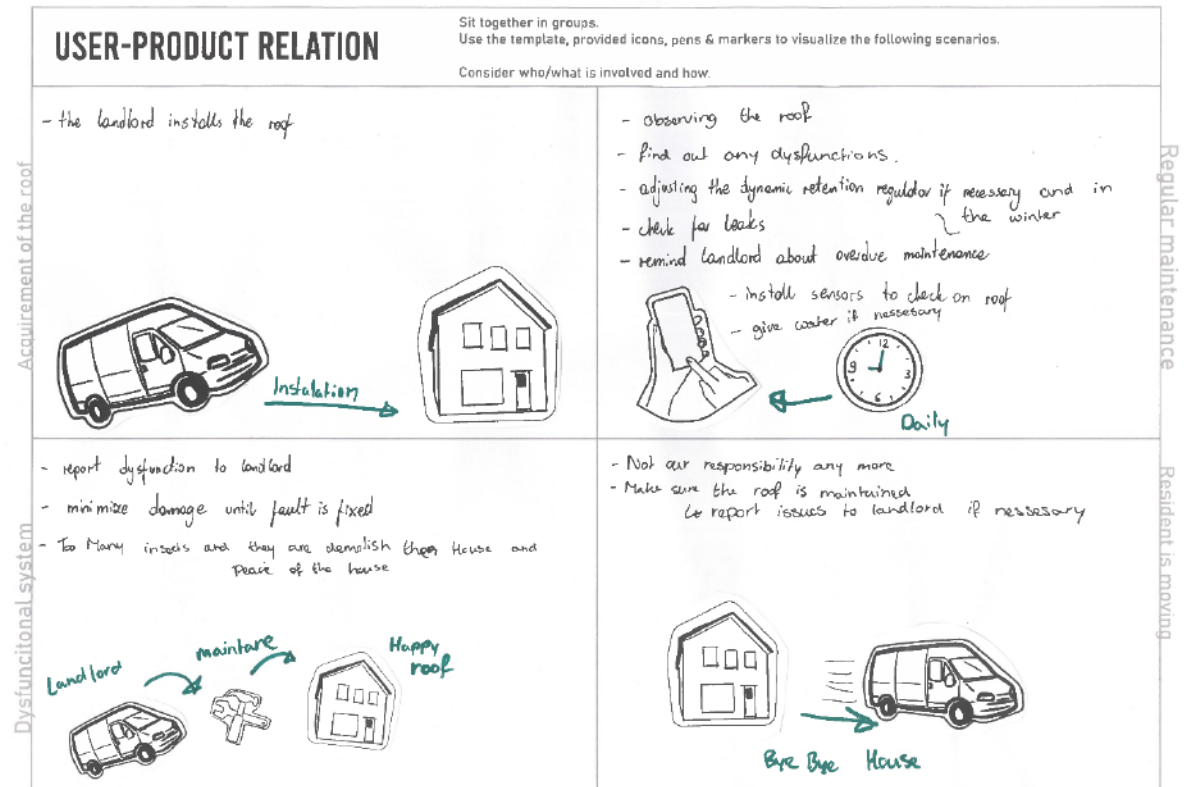 USER-PRODUCT RELATION
Sit together in groups.
Use the template, provided icons, pens & markers to visualize the following scenarios.
Consider who/what is involved and how.
Acquirement of the roof
- the landlord installs the roof
Instalation
Regular maintenance
- observing the roof
- find out any dysfunctions.
- adjusting the dynamic retention regulator if necessary and in
the winter
- check for leaks
- remind landlord about overdue maintenance
- install sensors to check on roof
- give water if nessesary
12
3
6
9
Daily
Dysfuncitonal system
- report dysfunction to landlord
- minimize damage until fault is fixed
- Too Many insects and they are demolish House and
Peace of the house
Landlord
maintare
Happy
roof
Resident is moving
- Not our responsibility any more
- Make sure the roof is maintained
↳ report issues to landlord if nessesary
Bye Bye House